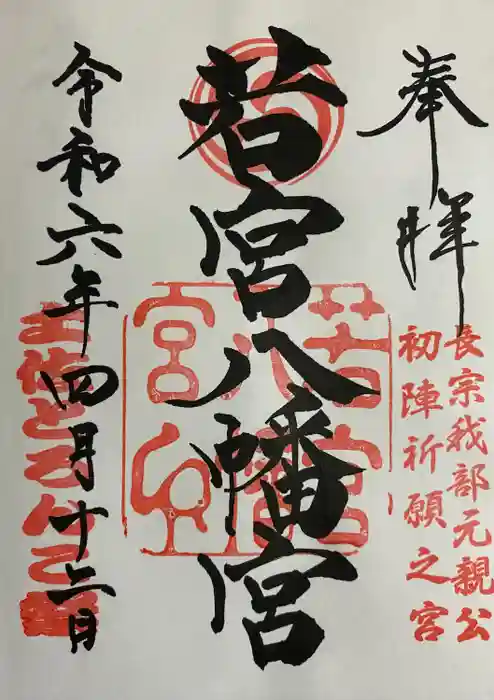 奉拝
長宗我部元親公
初陣祈願之宮
若宮八幡宮
令和六年四月十二日